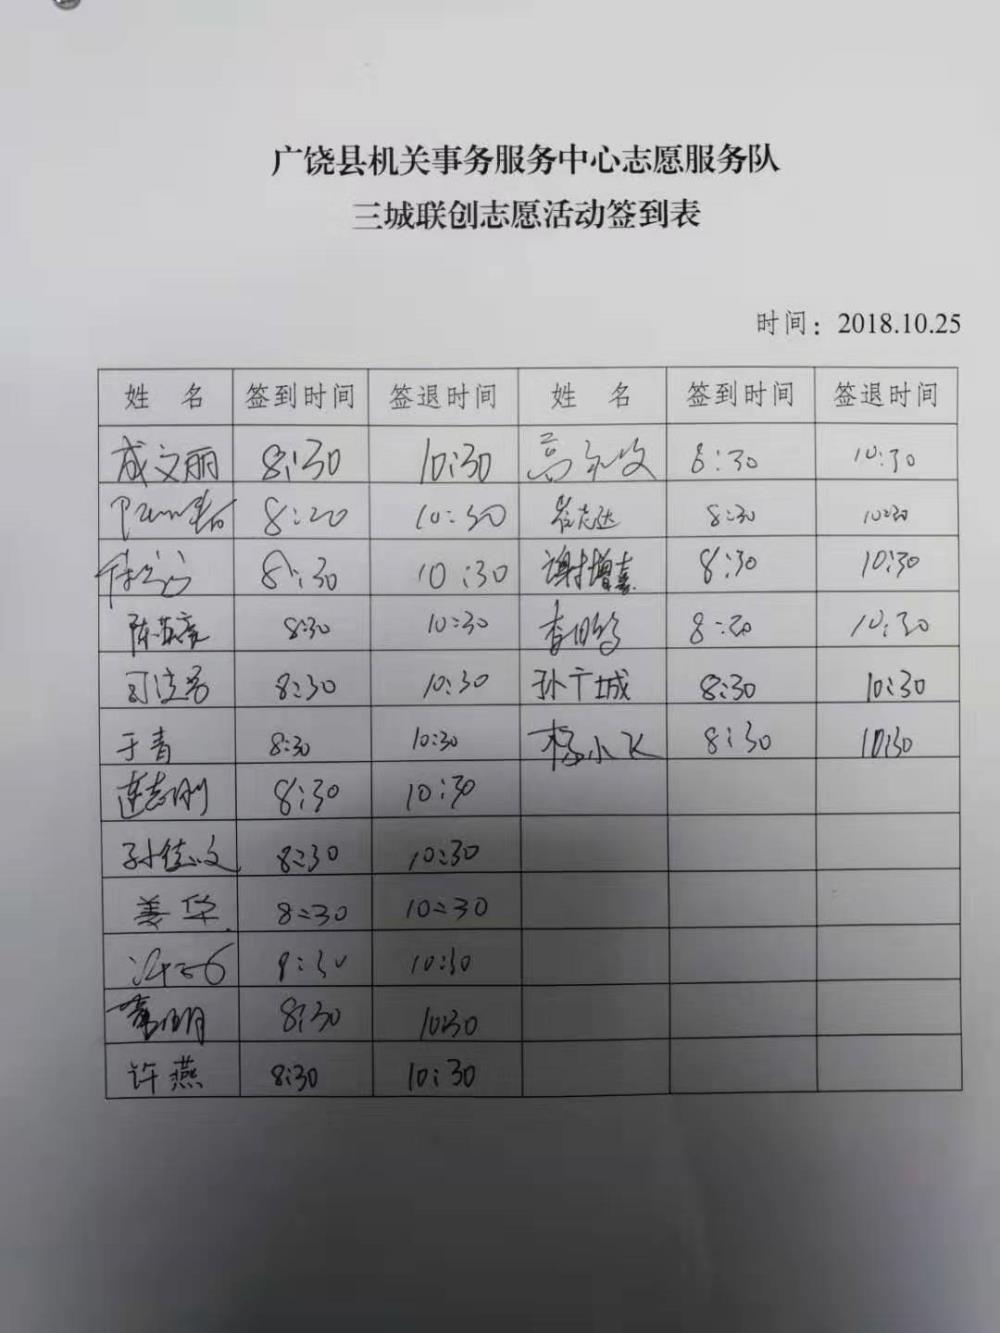 广饶县机关事务服务中心志愿服务队
三城联创志愿活动签到表
时间：2018.10.25
姓 名 签到时间 签退时间 姓 名 签到时间 签退时间
成文丽 8:30 10:30 8:30 10:30
8:20 10:30 崔志达 8:30 10:30
8:30 10:30 谢增嘉 8:30 10:30
8:30 10:30 8:30 10:30
8:30 10:30 孙广城 8:30 10:30
于青 8:30 10:30 杨小飞 8:30 10:30
连志刚 8:30 10:30
孙佳文 8:30 10:30
姜华 8:30 10:30
8:30 10:30
8:30 10:30
许燕 8:30 10:30